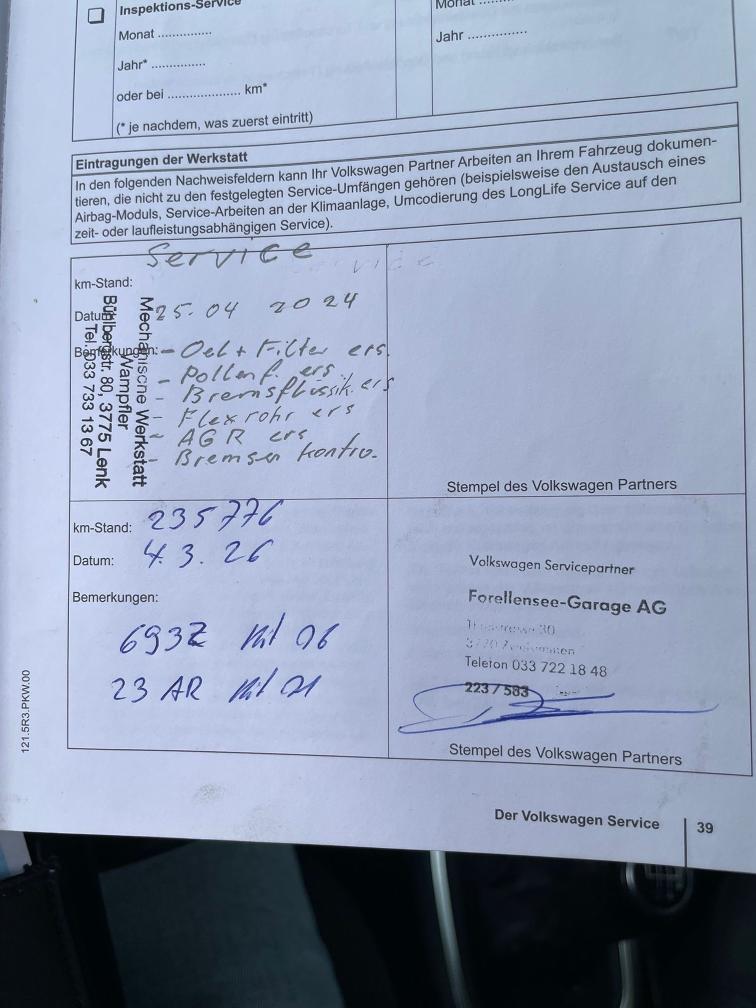 Inspektions-Service
Monat ..............
Jahr* ..............
oder bei ................... km*
(* je nachdem, was zuerst eintritt)
Monat ..............
Jahr ...............
Eintragungen der Werkstatt
In den folgenden Nachweisfeldern kann Ihr Volkswagen Partner Arbeiten an Ihrem Fahrzeug dokumen-
tieren, die nicht zu den festgelegten Service-Umfängen gehören (beispielsweise den Austausch eines
Airbag-Moduls, Service-Arbeiten an der Klimaanlage, Umcodierung des LongLife Service auf den
zeit- oder laufleistungsabhängigen Service).
Service
km-Stand:
Datum: 25.04 2024
Bemerkungen: - Oel + Filter ers.
- Pollenf. ers.
- Bremsflüssik. ers
- Flexrohr ers
- AGR ers
- Bremsen kontro.
Mechanische Werkstatt
Wampfler
Bühlbergstr. 80, 3775 Lenk
Tel. 033 733 13 67
Stempel des Volkswagen Partners
km-Stand: 235776
Datum: 4.3.26
Bemerkungen:
693Z 06
23 AR 01
Volkswagen Servicepartner
Forellensee-Garage AG
30
Telefon 033 722 18 48
223 / 583
Stempel des Volkswagen Partners
121.5R3.PKW.00
Der Volkswagen Service 39